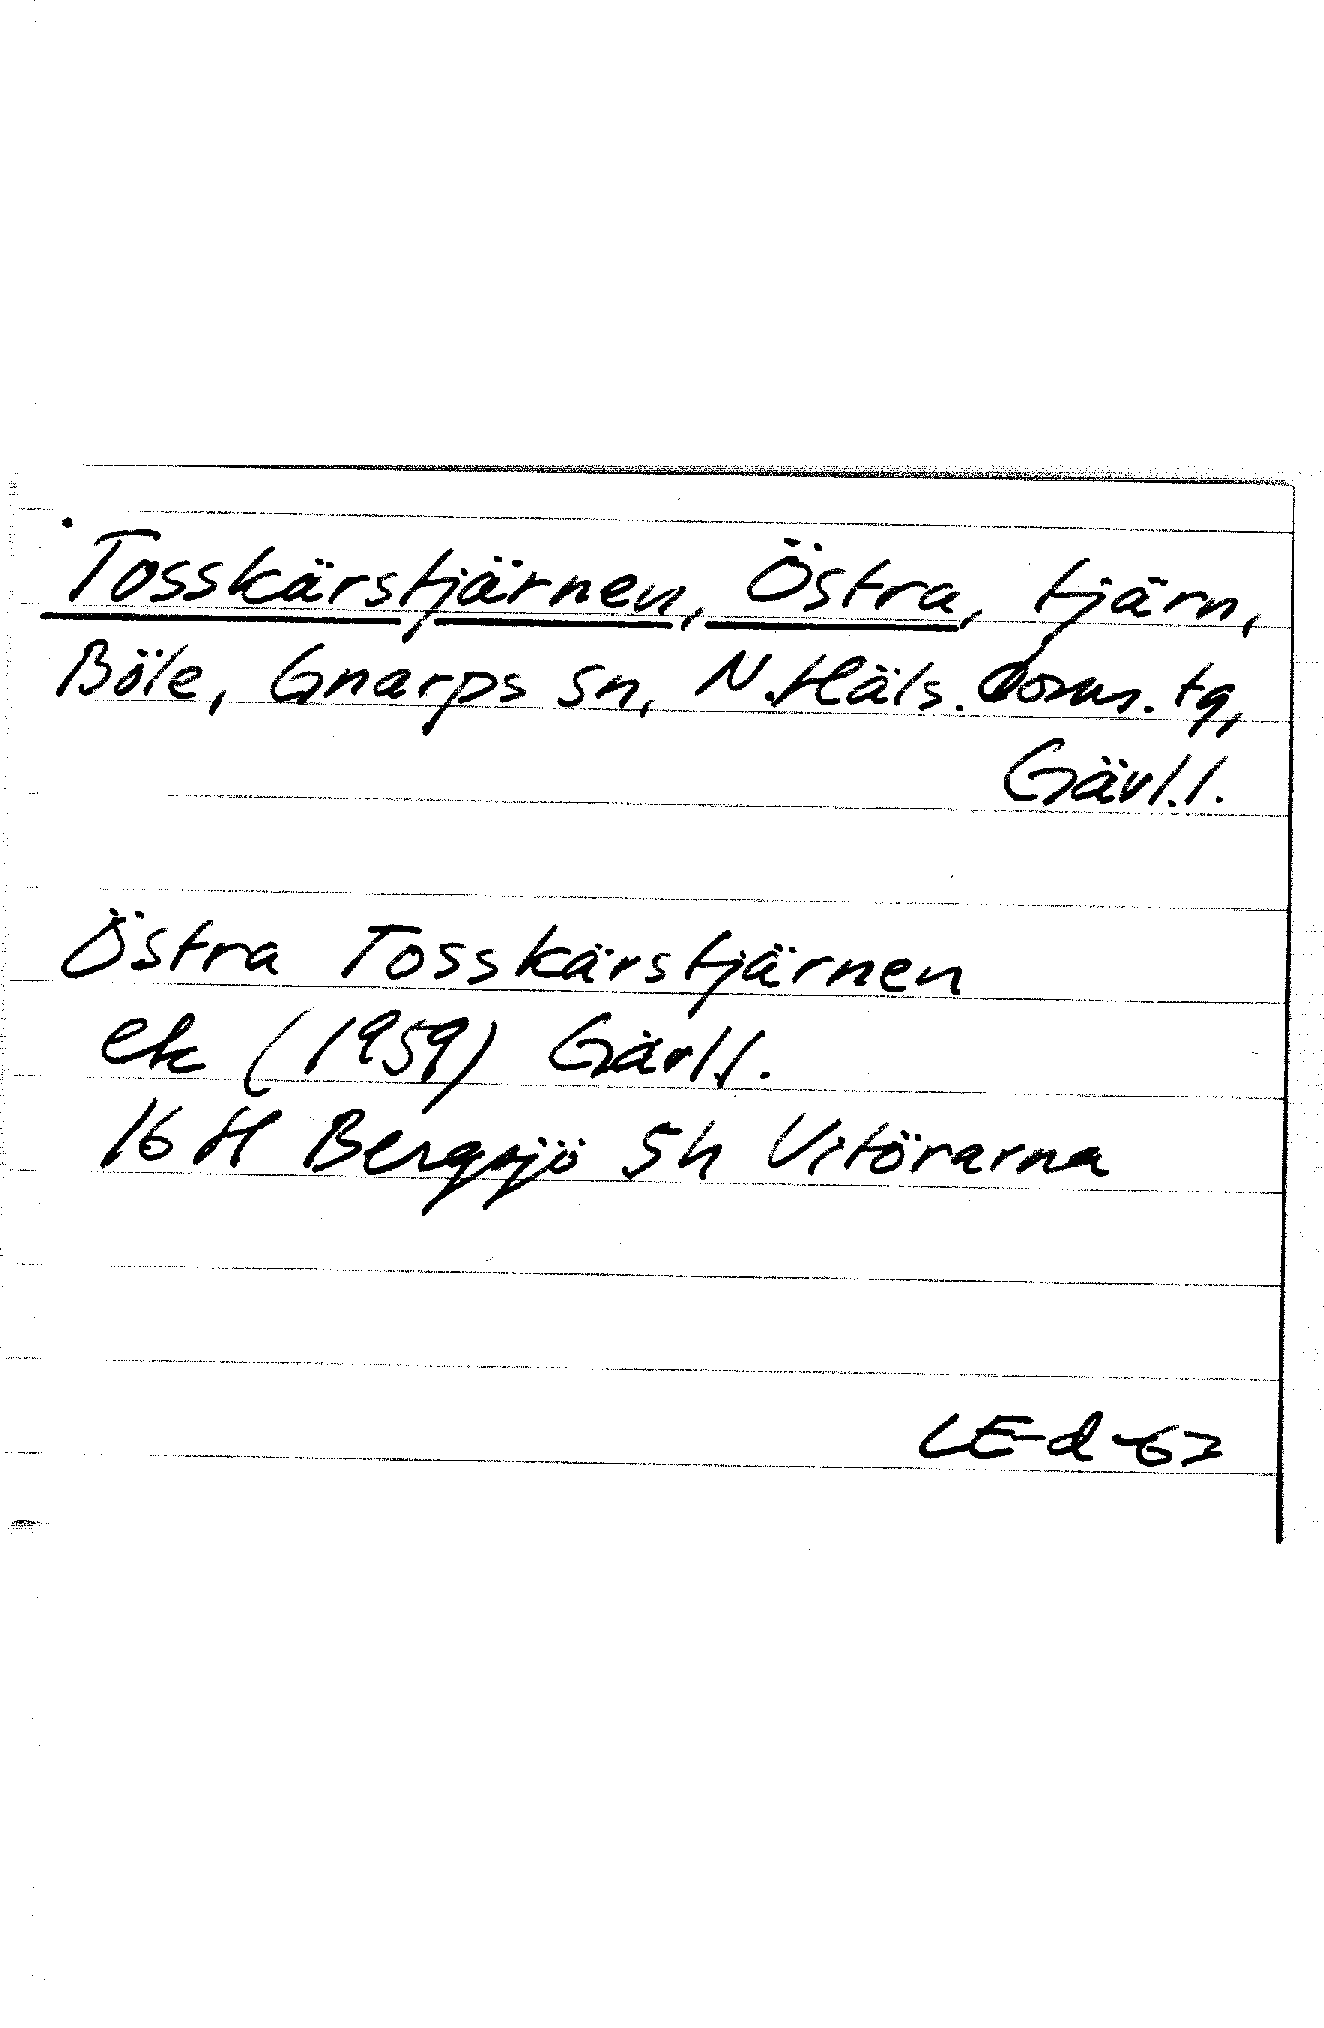 Tosskärstjärnen, Östra, tjärn,
Böle, Gnarps sn, N. Häls. doms. tg,
Gävl. l.
Östra Tosskärstjärnen
ek (1959) Gävl l.
16 H Bergsjö 5h Vitörarna
LE-d -67